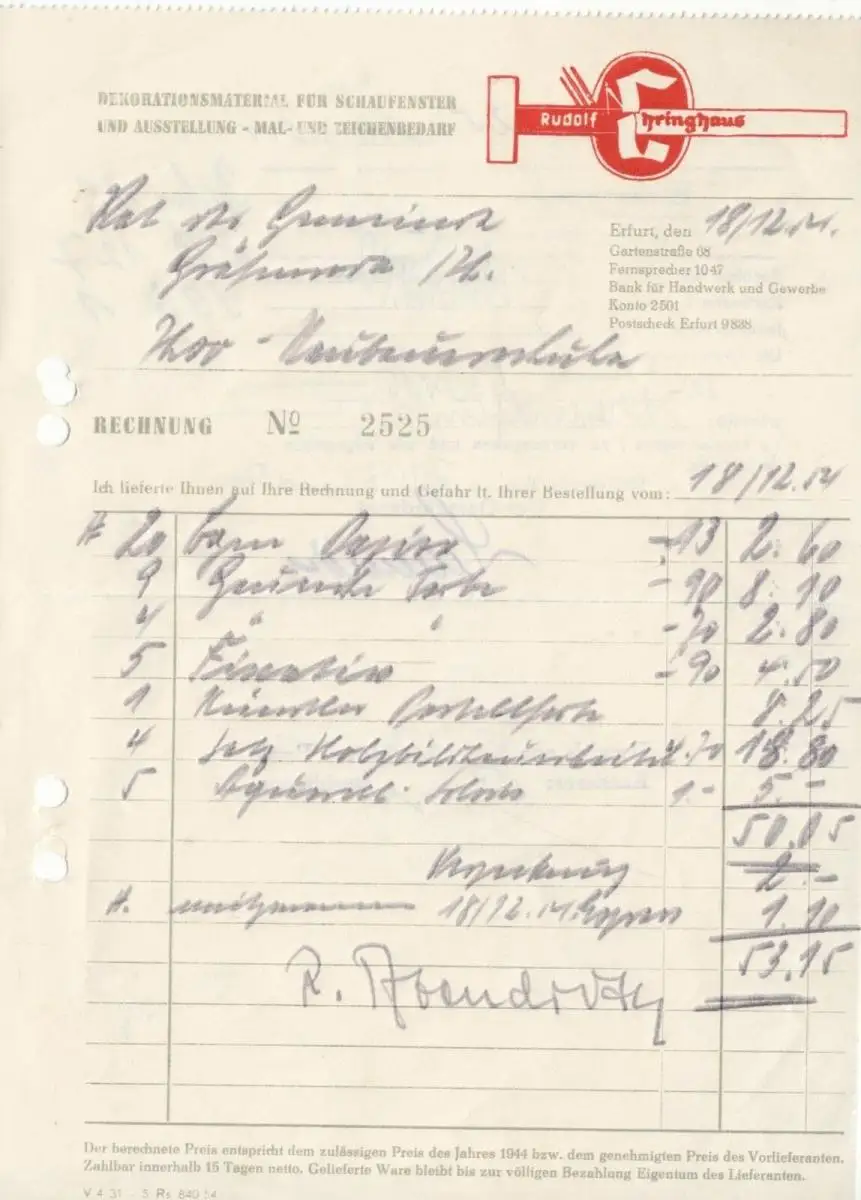 DEKORATIONSMATERIAL FÜR SCHAUFENSTER
UND AUSSTELLUNG - MAL- UND ZEICHENBEDARF
Rudolf Ehringhaus
Rat der Gemeinde
Gräfenroda /Th.
Neubauernschule
Erfurt, den 18/12.54.
Gartenstraße 68
Fernsprecher 1047
Bank für Handwerk und Gewerbe
Konto 2501
Postscheck Erfurt 9838
RECHNUNG Nº 2525
Ich lieferte Ihnen auf Ihre Rechnung und Gefahr lt. Ihrer Bestellung vom: 18/12.54
20 Papier -13 2.60
9 Farbe -90 8.10
4 " " -70 2.80
5 Fixativ -90 4.50
1 Künstler Pastellfarbe 8.25
4 Satz 4.70 18.80
5 Aquarell Blocks 1.- 5.-
50.05
Verpackung 2.-
18/12.54. 1.10
53.15
R.
Der berechnete Preis entspricht dem zulässigen Preis des Jahres 1944 bzw. dem genehmigten Preis des Vorlieferanten.
Zahlbar innerhalb 15 Tagen netto. Gelieferte Ware bleibt bis zur völligen Bezahlung Eigentum des Lieferanten.
V 4 31 - 3 Rs 840 54